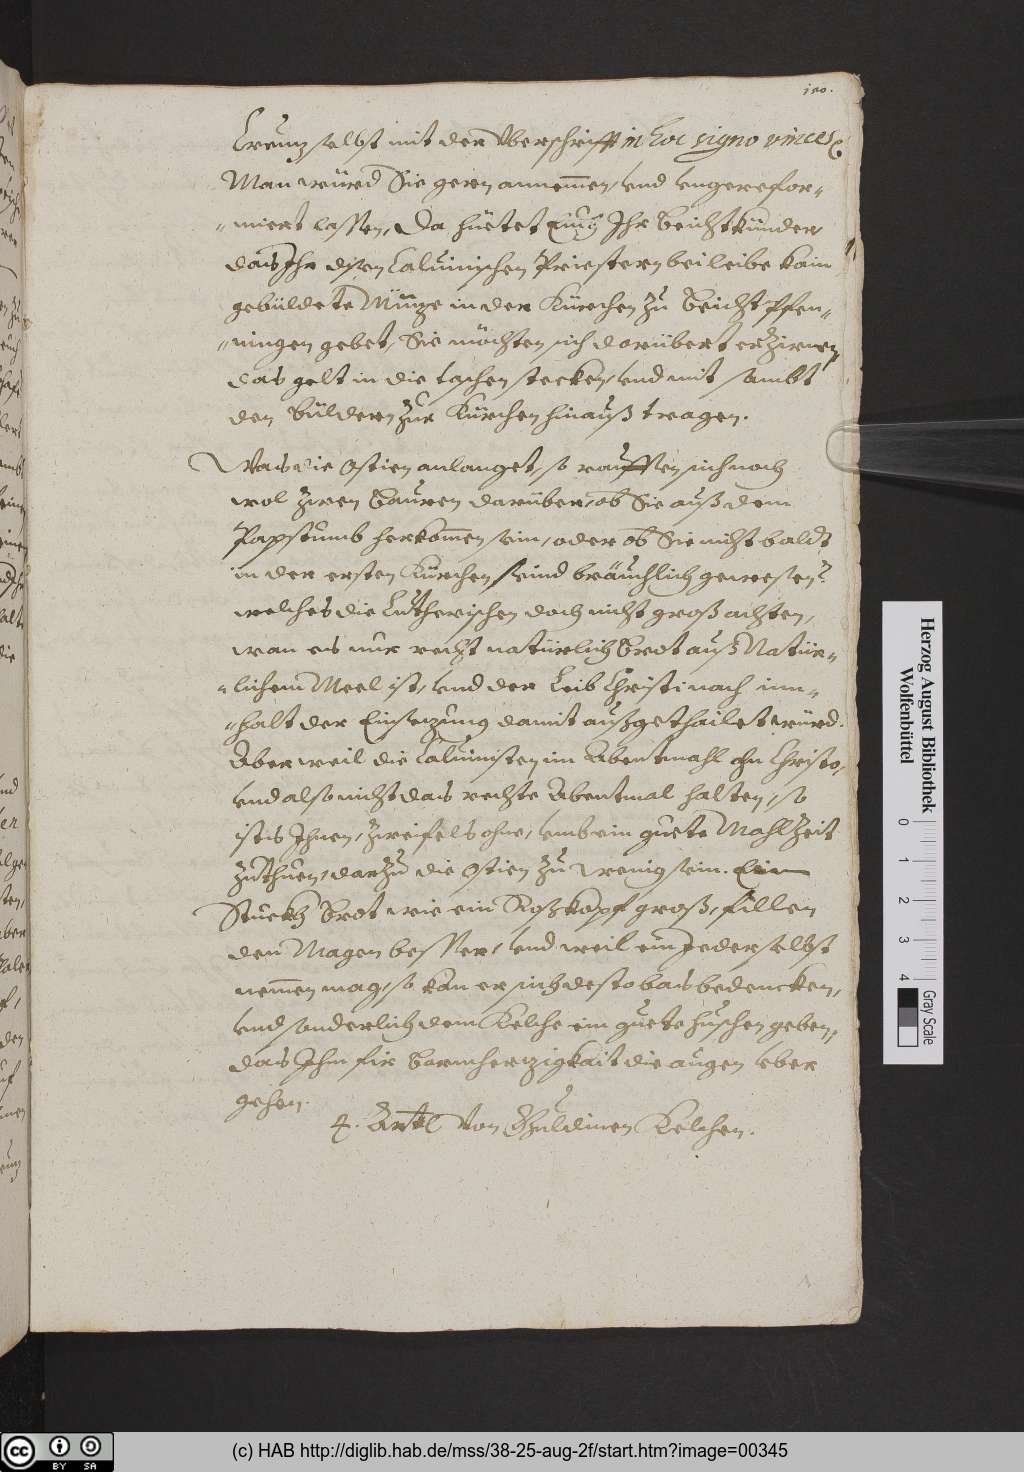 150.
Creutz selbst mit der Vberschrifft in hoc signo vinces
Man würd Sie gern annemen, vnd vngerefor-
-miert lassen, Da hüetet Euch Ihr Beichtkünder
das Ihr disen Caluinischen Priestern bei leibe kain
gebüldete Müntze in der Kürchen zu Beicht Pfen-
-ningen gebet, Sie möchten sich darübert erzirnen,
das gelt in die taschen stecken, vnd mit sambt
den Büldern zur Kürchen hinauß tragen.
Was die Ostien anlanget, so raufften sich noch
wol zwen Bauren darüber, ob Sie auß dem
Papstumb herkomen sein, oder ob Sie nicht baldt
in der ersten Kürchen seind bräuchlich gewesen?
welches die Lutherischen doch nicht groß achten,
wan es nur recht natürlich Brot auß Natür-
-lichem Meel ist, vnd der Leib Christi nach inn-
-halt der Einsezung damit außgethailet würd.
Aber weil die Caluinisten im Abentmahl ohn Christo,
vnd also nicht das rechte Abentmal halten, so
ists Ihnen, zweifels ohne, vmb ein guete Mahlzeit
zuthuen, darzu die Ostien zu wenig sein. Ein
Stuckh Brot wie ein Roßkopf groß, füllen
den Magen besser, vnd weil ein Jeder selbst
nemen mag, so kan er sich desto bas bedencken,
vnd sonderlich dem Kelche ein guete huschen geben,
das Ihm für Barmherzigkait die augen vber
gehen.
4. Artl Von Guldinen Kelchen.
Herzog August Bibliothek
Wolfenbüttel
0 1 2 3 4
Gray Scale
cc BY SA
(c) HAB http://diglib.hab.de/mss/38-25-aug-2f/start.htm?image=00345